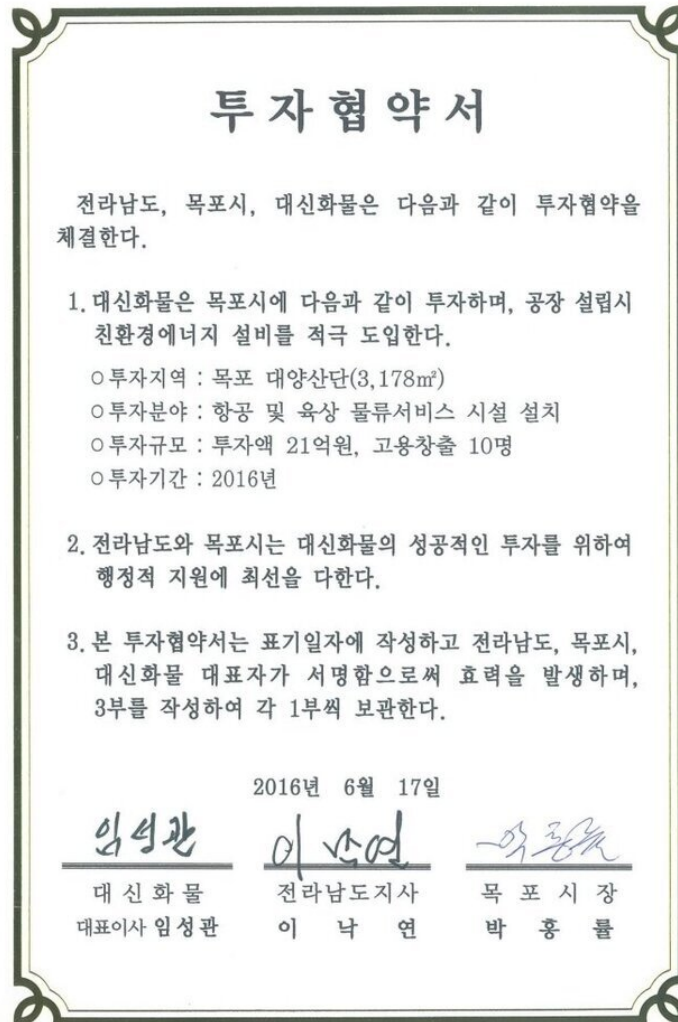 투자협약서
전라남도, 목포시, 대신화물은 다음과 같이 투자협약을
체결한다.
1. 대신화물은 목포시에 다음과 같이 투자하며, 공장 설립시
친환경에너지 설비를 적극 도입한다.
○투자지역 : 목포 대양산단(3,178㎡)
○투자분야 : 항공 및 육상 물류서비스 시설 설치
○투자규모 : 투자액 21억원, 고용창출 10명
○투자기간 : 2016년
2. 전라남도와 목포시는 대신화물의 성공적인 투자를 위하여
행정적 지원에 최선을 다한다.
3. 본 투자협약서는 표기일자에 작성하고 전라남도, 목포시,
대신화물 대표자가 서명함으로써 효력을 발생하며,
3부를 작성하여 각 1부씩 보관한다.
2016년 6월 17일
임성관 이낙연 박홍률
대신화물 전라남도지사 목포시장
대표이사 임성관 이낙연 박홍률